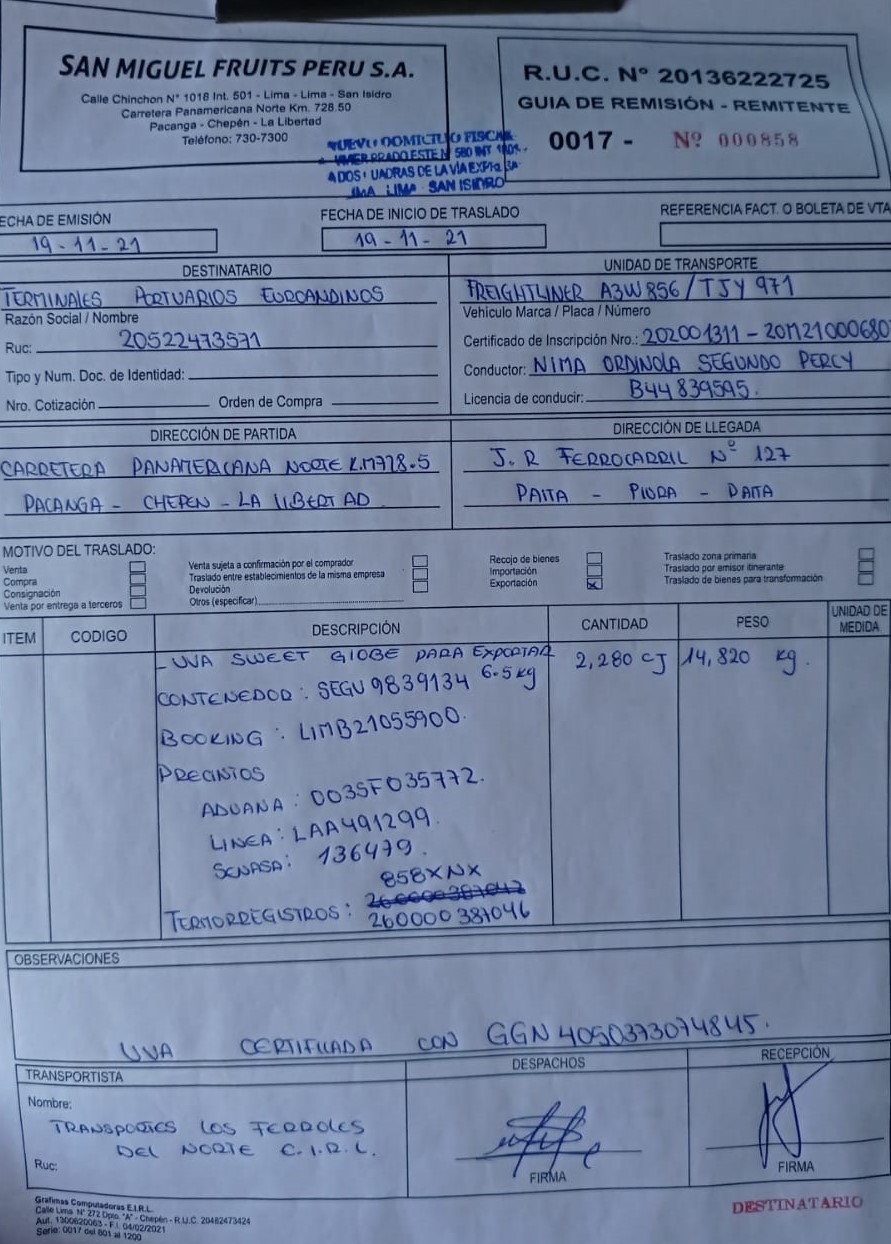 SAN MIGUEL FRUITS PERU S.A.
Calle Chinchon N° 1018 Int. 501 - Lima - Lima - San Isidro
Carretera Panamericana Norte Km. 728.50
Pacanga - Chepén - La Libertad
Teléfono: 730-7300
NUEVO DOMICILIO FISCAL
PRADO ESTE N° 580 INT
CUADRAS DE LA VIA
LIMA LIMA SAN ISIDRO
R.U.C. N° 20136222725
GUIA DE REMISIÓN - REMITENTE
0017 - Nº 000858
FECHA DE EMISIÓN
19-11-21
FECHA DE INICIO DE TRASLADO
19-11-21
REFERENCIA FACT. O BOLETA DE VTA
DESTINATARIO
TERMINALES PORTUARIOS EUROANDINOS
Razón Social / Nombre
Ruc: 20522473571
Tipo y Num. Doc. de Identidad:
Nro. Cotización Orden de Compra
UNIDAD DE TRANSPORTE
FREIGHTLINER A3W856/TJY971
Vehículo Marca / Placa / Número
Certificado de Inscripción Nro.: 202001311 - 20M21000680
Conductor: NIMA ORDINOLA SEGUNDO PERCY
Licencia de conducir: B44839595.
DIRECCIÓN DE PARTIDA
CARRETERA PANAMERICANA NORTE K.M728.5
PACANGA - CHEPEN - LA LIBERTAD
DIRECCIÓN DE LLEGADA
J.R FERROCARRIL Nº 127
PAITA - PIURA - PAITA
MOTIVO DEL TRASLADO:
Venta
Compra
Consignación
Venta por entrega a terceros
Venta sujeta a confirmación por el comprador
Traslado entre establecimientos de la misma empresa
Devolución
Otros (especificar)
Recojo de bienes
Importación
Exportación X
Traslado zona primaria
Traslado por emisor itinerante
Traslado de bienes para transformación
ITEM CODIGO DESCRIPCIÓN CANTIDAD PESO UNIDAD DE MEDIDA
- UVA SWEET GLOBE PARA EXPORTAR 2,280 CJ 14,820 kg.
6.5 kg
CONTENEDOR: SEGU 9839134
BOOKING: LIMB21055900.
PRECINTOS
ADUANA: 003SF035772.
LINEA: LAA491299.
SENASA: 136479.
858XNX
260000387042
TERMORREGISTROS: 260000387046
OBSERVACIONES
UVA CERTIFICADA CON GGN 4050373074845.
TRANSPORTISTA
Nombre:
TRANSPORTES LOS FERROLES
DEL NORTE E.I.R.L.
Ruc:
DESPACHOS
FIRMA
RECEPCIÓN
FIRMA
Grafimas Computadoras E.I.R.L.
Calle Lima N° 272 Dpto. "A" - Chepén - R.U.C. 20482473424
Aut. 1300620063 - F.I. 04/02/2021
Serie: 0017 del 801 al 1200
DESTINATARIO